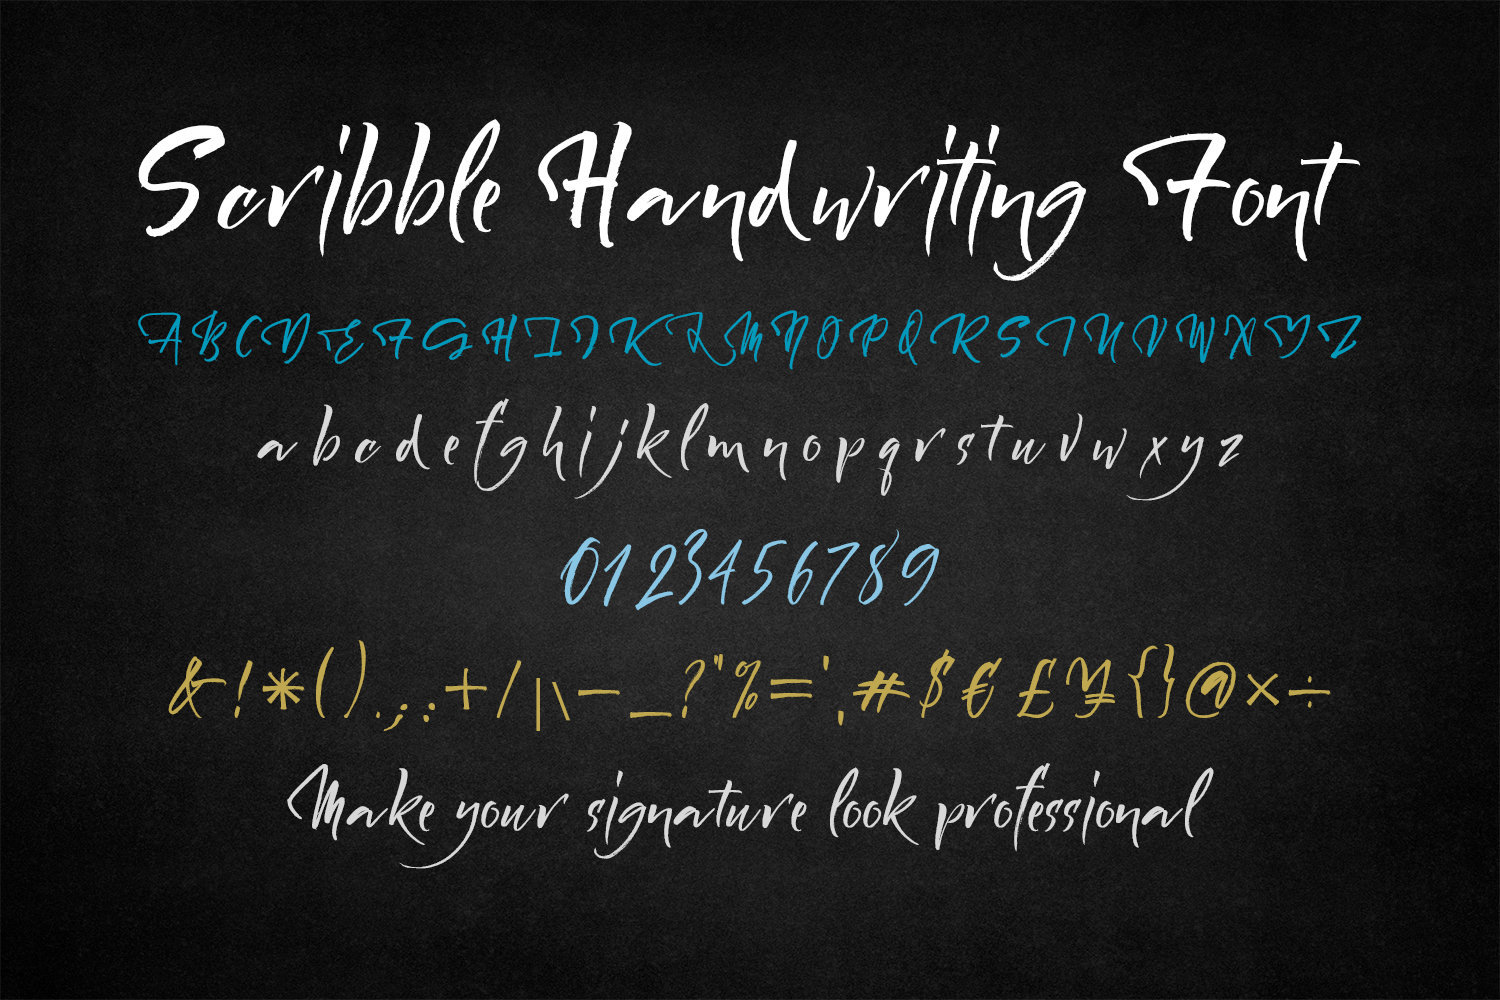 Scribble Handwriting Font
A B C D E F G H I J K L M N O P Q R S T U V W X Y Z
a b c d e f g h i j k l m n o p q r s t u v w x y z
0123456789
& ! * ( ) . ; : + / | \ – _ ? " % = ' , # $ € £ ¥ { } @ × ÷
Make your signature look professional